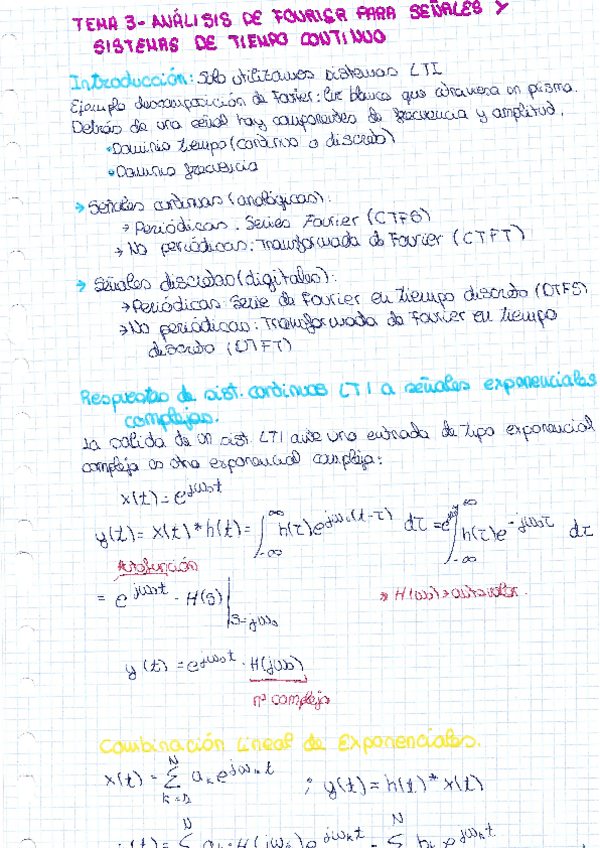 TEMA 3- ANÁLISIS DE FOURIER PARA SEÑALES Y
SISTEMAS DE TIEMPO CONTINUO
Introducción: Solo utilizamos sistemas LTI
Ejemplo descomposición de Fourier: luz blanca que atraviesa un prisma.
Detrás de una señal hay componentes de frecuencia y amplitud.
•Dominio tiempo (continuo o discreto)
•Dominio frecuencia
→ Señales continuas (analógicas):
→ Periódicas. Series Fourier (CTFS)
→ No periódicas: Transformada de Fourier (CTFT)
→ Señales discretas (digitales):
→Periódicas: Serie de Fourier en tiempo discreto (DTFS)
→No periódicas: Transformada de Fourier en tiempo
discreto (DTFT)
Respuestas de sist. continuos LTI a señales exponenciales
complejas.
La salida de un sist. LTI ante una entrada de tipo exponencial
compleja es otra exponencial compleja:
x(t) = e^{jω₀t}
y(t) = x(t) * h(t) = ∫_{-∞}^{∞} h(τ)e^{jω₀(t-τ)} dτ = e^{jω₀t} ∫_{-∞}^{∞} h(τ)e^{-jω₀τ} dτ
Autofunción
= e^{jω₀t} · H(s)|_{s=jω₀}
* H(ω₀) → autovalor.
y(t) = e^{jω₀t} · H(jω₀)
nº complejo
Combinación Lineal de Exponenciales.
x(t) = Σ^{N} aₖe^{jωₖt} ; y(t) = h(t) * x(t)
y(t) = Σ^{N} aₖ · H(jωₖ)e^{jωₖt} = Σ^{N} bₖ e^{jωₖt}